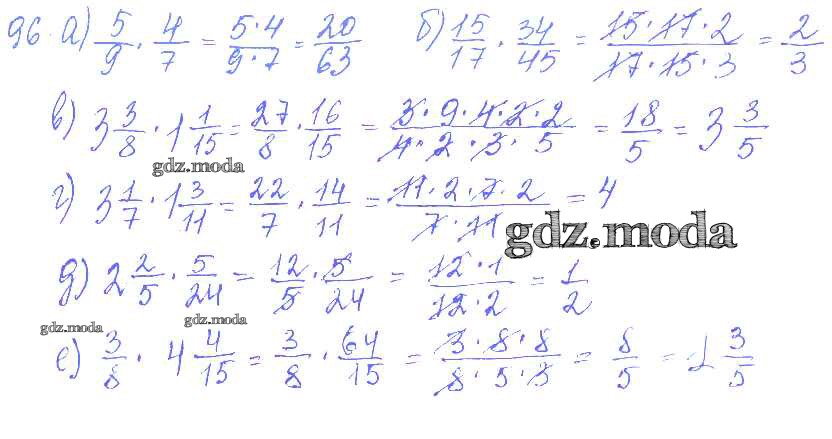 96. а) 5/9 · 4/7 = 5·4/9·7 = 20/63 б) 15/17 · 34/45 = 15·17·2/17·15·3 = 2/3
в) 3 3/8 · 1 1/15 = 27/8 · 16/15 = 3·9·4·2·2/4·2·3·5 = 18/5 = 3 3/5
gdz.moda
г) 3 1/7 · 1 3/11 = 22/7 · 14/11 = 11·2·7·2/7·11 = 4
gdz.moda
д) 2 2/5 · 5/24 = 12/5 · 5/24 = 12·1/12·2 = 1/2
gdz.moda gdz.moda
е) 3/8 · 4 4/15 = 3/8 · 64/15 = 3·8·8/8·5·3 = 8/5 = 1 3/5